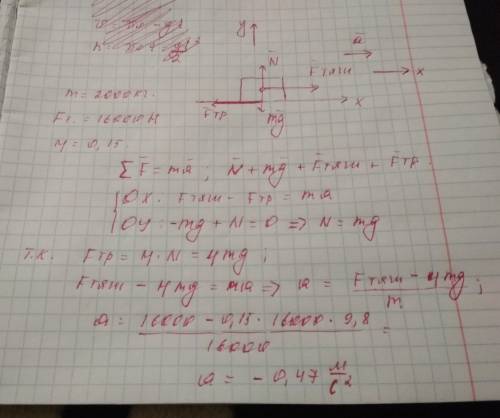 y
a
N
Fтяги
x
x
Fтр
mg
m = 2000 кг.
Fт. = 16000 Н
М = 0,15
∑F = ma ; N + mg + Fтяги + Fтр.
OX. Fтяги - Fтр = ma
OY: -mg + N = 0 => N = mg
Т.К. Fтр = М · N = Мmg ;
Fтяги - Мmg = ma => a = Fтяги - Мmg / m ;
a = 16000 - 0,15 · 16000 · 9,8 / 16000 =
a = - 0,47 м/с²